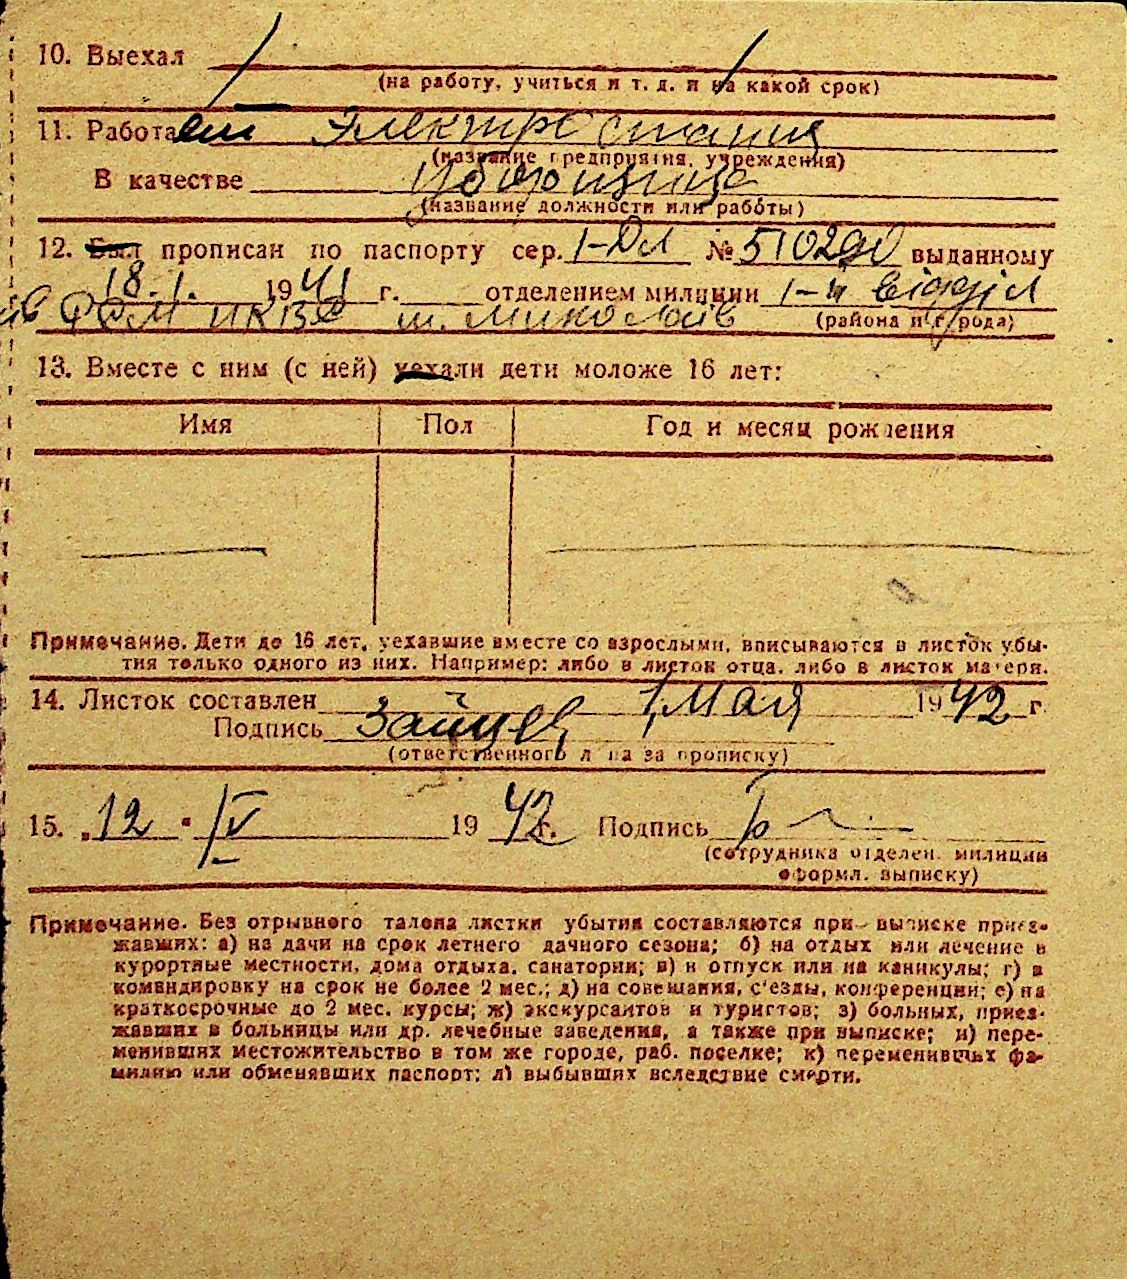 10. Выехал
(на работу, учиться и т. д. и на какой срок)
11. Работает Электростанция
(название предприятия, учреждения)
В качестве уборщица
(название должности или работы)
12. Был прописан по паспорту сер. 1-ДЛ № 510290 выданному
18.1. 1941 г. отделением милиции 1-й відділ
РСМ НКВС м. Миколаїв (района и города)
13. Вместе с ним (с ней) уехали дети моложе 16 лет:
Имя Пол Год и месяц рождения
Примечание. Дети до 16 лет, уехавшие вместе со взрослыми, вписываются в листок убы-
тия только одного из них. Например: либо в листок отца, либо в листок матери.
14. Листок составлен 1 Мая 1942 г.
Подпись Зайцев
(ответственного лица за прописку)
15. „12 " IV 1942 г. Подпись
(сотрудника отделен. милиции
оформл. выписку)
Примечание. Без отрывного талона листки убытия составляются при выписке приез-
жавших: а) на дачи на срок летнего дачного сезона; б) на отдых или лечение в
курортные местности, дома отдыха, санатории; в) в отпуск или на каникулы; г) в
командировку на срок не более 2 мес.; д) на совещания, с'езды, конференции; е) на
краткосрочные до 2 мес. курсы; ж) экскурсантов и туристов; з) больных, приез-
жавших в больницы или др. лечебные заведения, а также при выписке; и) пере-
менивших местожительство в том же городе, раб. поселке; к) переменивших фа-
милию или обменявших паспорт; л) выбывших вследствие смерти.